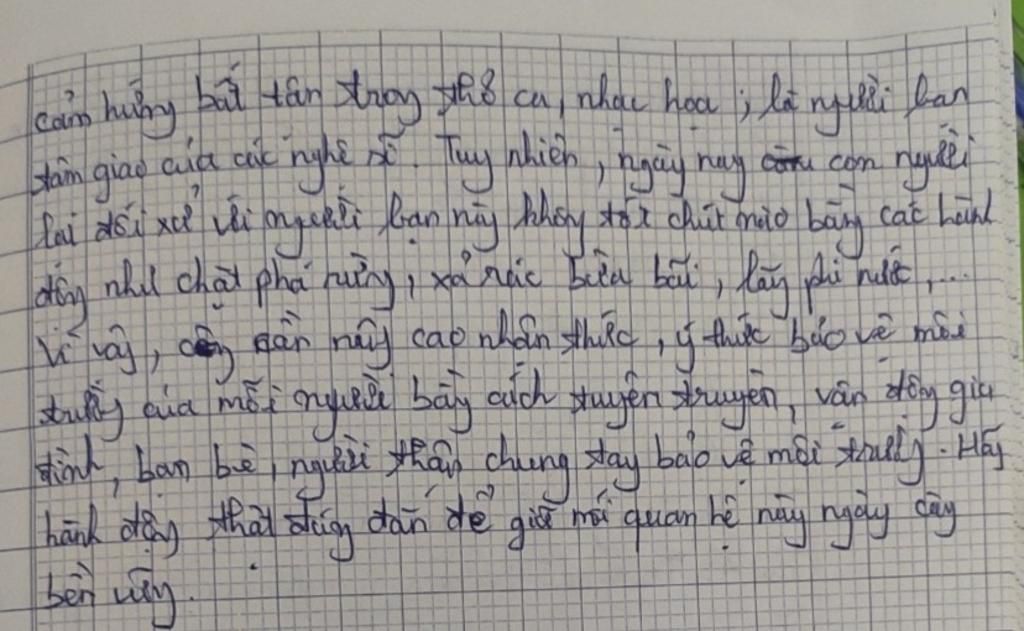 cảm hứng bất tận trong thơ ca, nhạc họa; là người bạn
tâm giao của các nghệ sĩ. Tuy nhiên, ngày nay con người
lại đối xử với người bạn này không tốt chút nào bằng các hành
động như chặt phá rừng, xả rác bừa bãi, lãng phí nước,...
Vì vậy, cần nâng cao nhận thức, ý thức bảo vệ môi
trường của mỗi người bằng cách tuyên truyền, vận động gia
đình, bạn bè, người thân chung tay bảo vệ môi trường. Hãy
hành động thật đúng đắn để giữ mối quan hệ này ngày càng
bền vững.